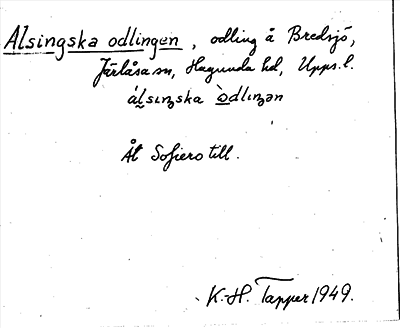 Alsingska odlingen, odling å Bredsjö,
Järlåsa sn, Hagunda hd, Upps. l.
Åt Sofiero till.
K.-H. Tapper 1949.